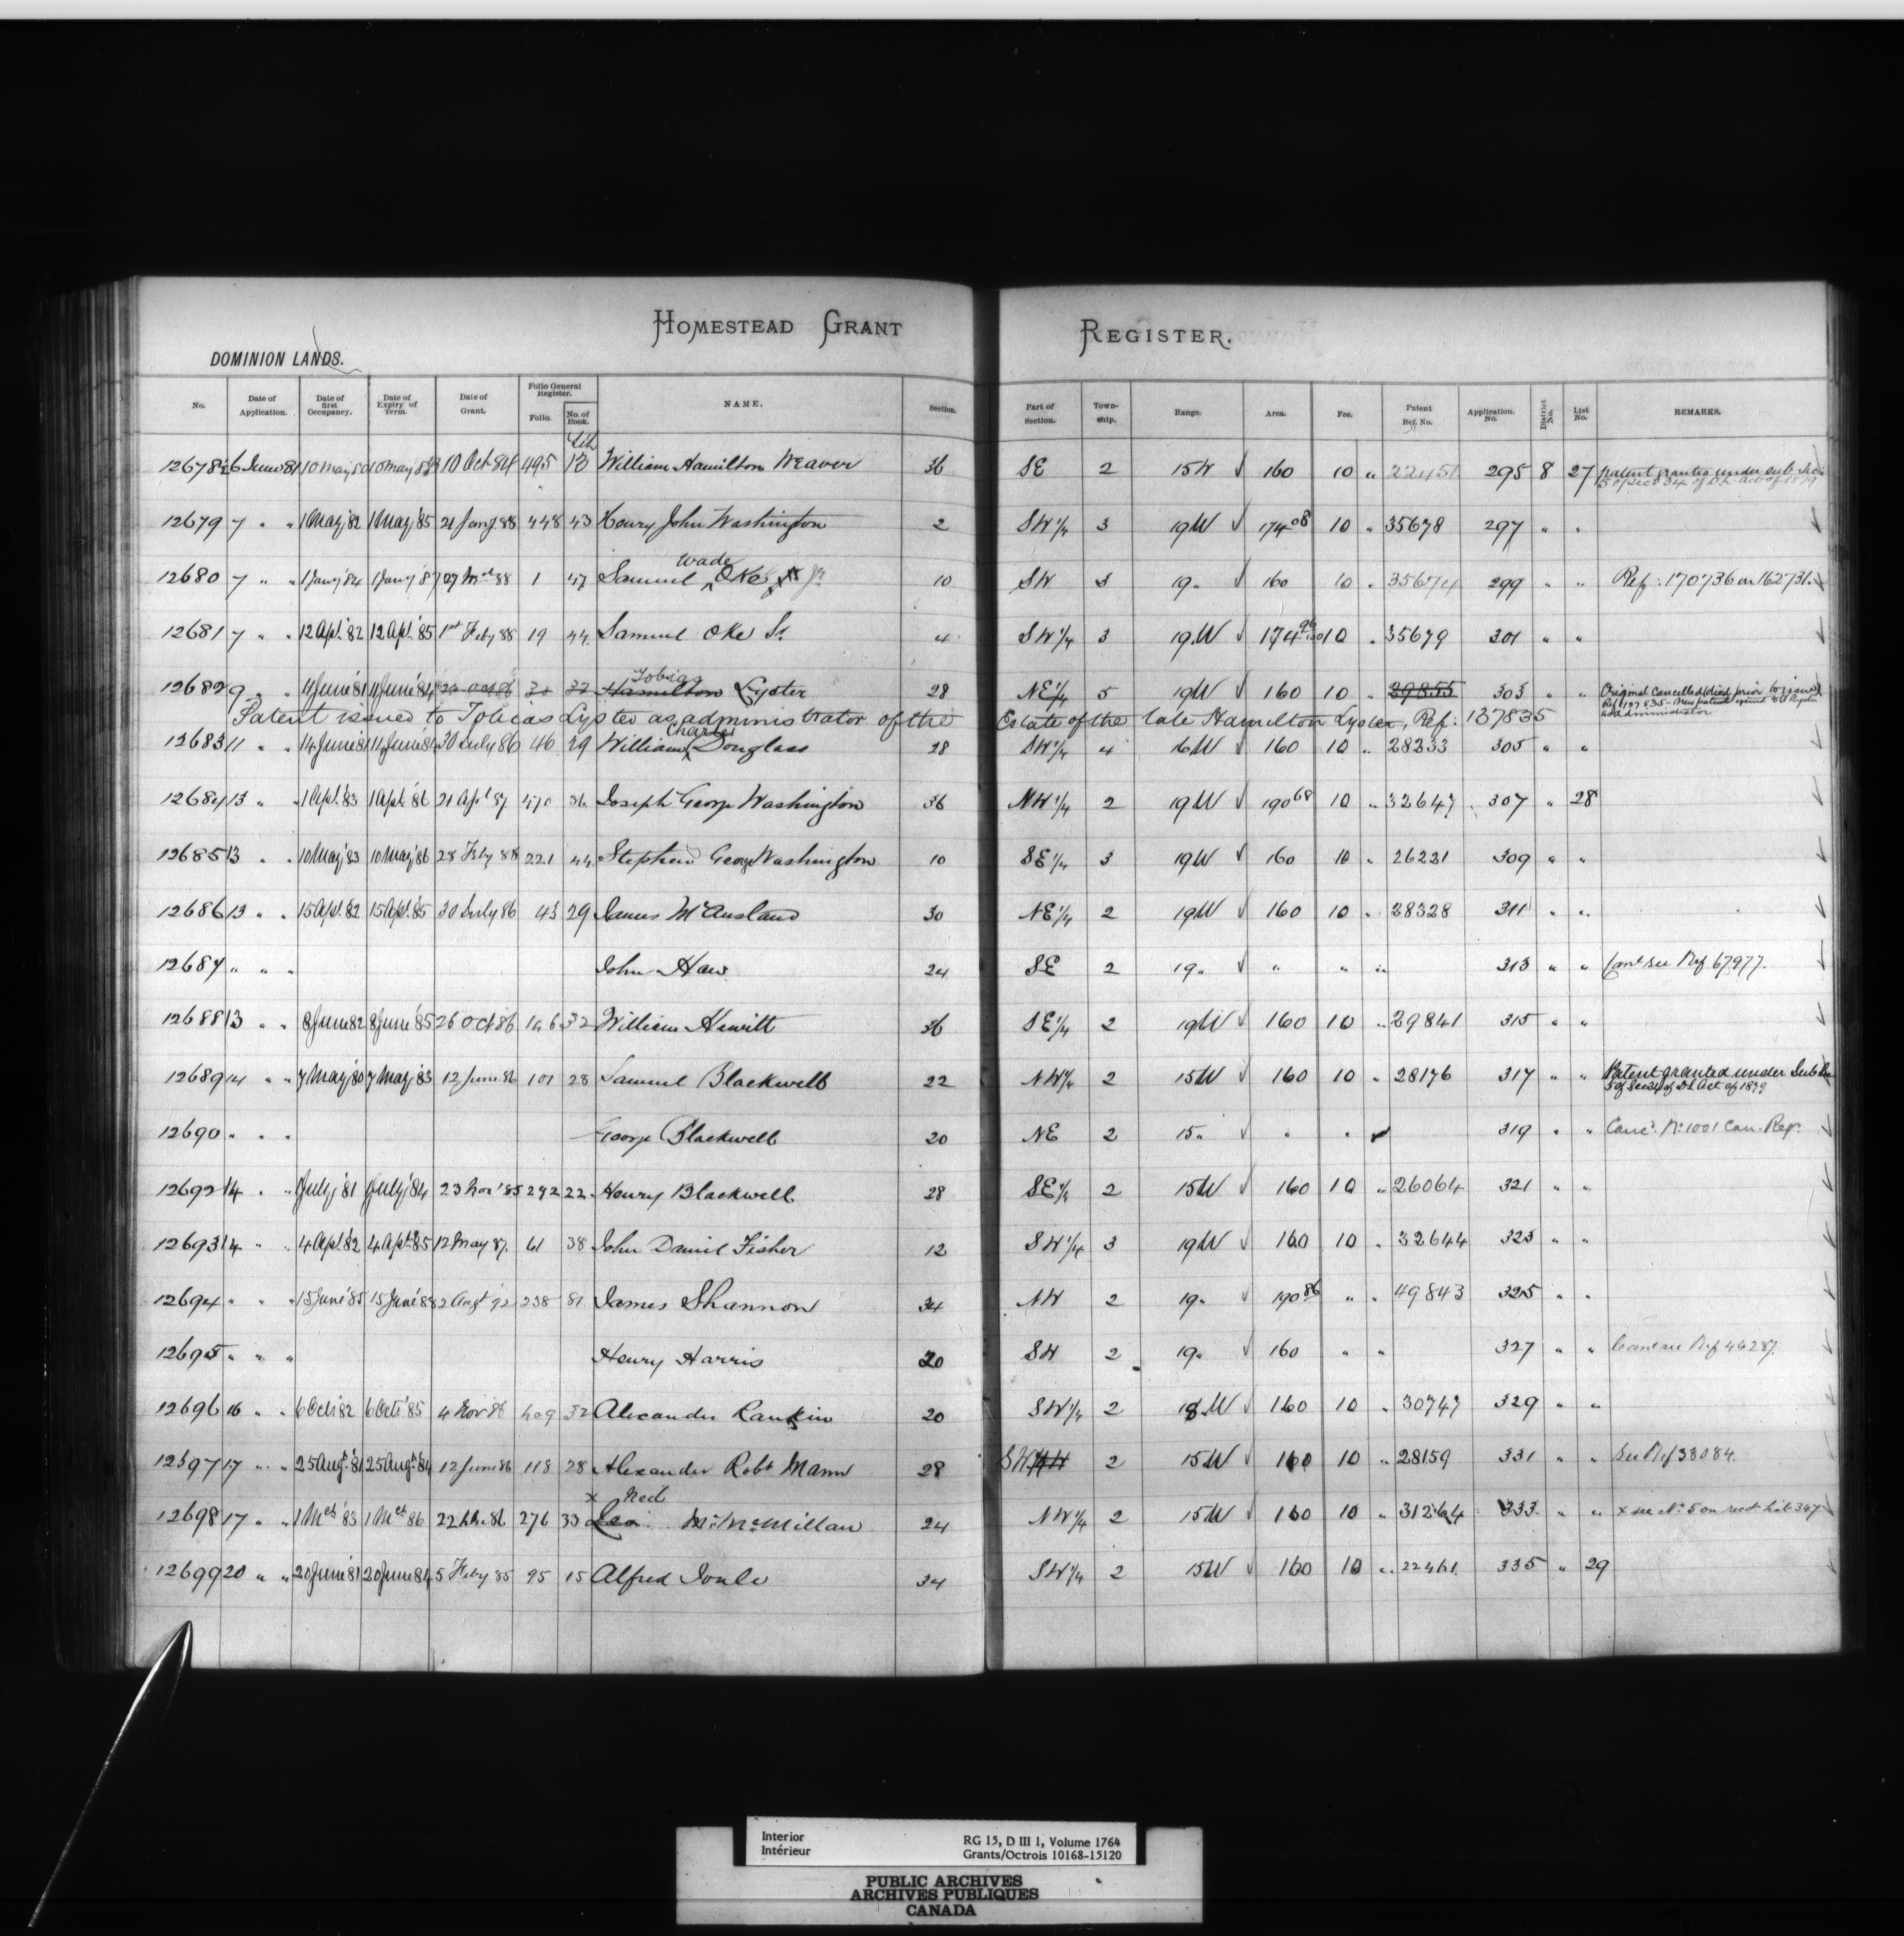 HOMESTEAD GRANT REGISTER.
DOMINION LANDS.
No. Date of Application. Date of first Occupancy. Date of Expiry of Term. Date of Grant. Folio General Register. Folio. No. of Book. NAME. Section. Part of Section. Town-ship. Range. Area. Fee. Patent Ref. No. Application No. District No. List No. REMARKS.
Lib
12678 6 June 81 10 May 80 10 May 83 10 Oct 84 495 13 William Hamilton Weaver 36 SE 2 15W √ 160 10 " 22451 295 8 27 Patent granted under sub Sec. 5 of Sect 34 of D.L. Act of 1879
12679 7 " " 1 May '82 1 May '85 21 Jany 88 448 43 Henry John Washington 2 SW 1/4 3 19W √ 174 08 10 " 35678 297 " "
12680 7 " " 1 Jany '84 1 Jany '87 27 Mch 88 1 47 Samuel Wade Oke Jr 10 SW 3 19 " √ 160 10 " 35674 299 " " Ref: 170736 on 162731.
12681 7 " " 12 Apl. '82 12 Apl. '85 1st Feby 88 19 44 Samuel Oke Sr. 4 SW 1/4 3 19W √ 174 96/100 10 " 35679 301 " "
12682 9 " " 11 June '81 11 June '84 32 Hamilton Tobias Lyster 28 NE 1/4 5 19W √ 160 10 " 29855 303 " " Original Cancelled (died prior to issue) Ref 137835 - New patent issued to Lyster as administrator
Patent issued to Tobias Lyster as administrator of the Estate of the late Hamilton Lyster, Ref: 137835
12683 11 " " 14 June 81 11 June 84 30 July 86 46 29 William Charles Douglass 28 SW 1/4 4 16W √ 160 10 " 28333 305 " "
12684 13 " " 1 Apl. '83 1 Apl. '86 21 Apl 87 470 36 Joseph George Washington 36 NW 1/4 2 19W √ 190 68 10 " 32647 307 " 28
12685 13 " " 10 May '83 10 May '86 28 Feby 88 221 44 Stephen George Washington 10 SE 1/4 3 19W √ 160 10 " 26221 309 " "
12686 13 " " 15 Apl. 82 15 Apl. 85 30 July 86 43 29 James McAusland 30 NE 1/4 2 19W √ 160 10 " 28328 311 " "
12687 " " " John Haw 24 SE 2 19 " √ " " " 313 " " Canc see Ref 67977.
12688 13 " " 8 June 82 8 June '85 26 Oct 86 106 32 William Hewitt 36 SE 1/4 2 19W √ 160 10 " 29841 315 " "
12689 14 " " 7 May 80 7 May 83 12 June 86 101 28 Samuel Blackwell 22 NW 1/4 2 15W √ 160 10 " 28176 317 " " Patent granted under Sub Sec 5 of Sec 34 of D L Act of 1879
12690 " " " George Blackwell 20 NE 2 15 " √ " " 319 " " Canc'd. No. 1001 Can. Regr.
12692 14 " " 1 July '81 1 July '84 23 Nov '85 292 22 Henry Blackwell 28 SE 1/4 2 15W √ 160 10 " 26064 321 " "
12693 14 " " 4 Apl. 82 4 Apl. 85 12 May 87. 61 38 John Daniel Fisher 12 SW 1/4 3 19W √ 160 10 " 32644 323 " "
12694 " " " 15 June '85 15 June '88 2 Augt '92 238 81 James Shannon 34 NW 2 19 " √ 190 86 " " 49843 325 " "
12695 " " " Henry Harris 20 SW 2 19 " √ 160 " " 327 " " Canc see Ref 46287.
12696 16 " " 6 Oct. 82 6 Oct. 85 4 Nov 86 409 32 Alexander Rankin 20 SW 1/4 2 18W √ 160 10 " 30747 329 " "
12697 17 " " 25 Augt. '81 25 Augt. '84 12 June 86 118 28 Alexander Robt Mann 28 SW 2 15W √ 160 10 " 28159 331 " " See Ref 38084.
x Neil
12698 17 " " 1 Mch '83 1 Mch 86 22 86 276 33 McMillan 24 NW 1/4 2 15W √ 160 10 " 31264 333 " " x see No. 5 on rect. Lib 347
12699 20 " " 20 June 81 20 June 84 5 Feby 85 95 15 Alfred Soule 34 SW 1/4 2 15W √ 160 10 " 22461. 335 " 29
Interior RG 15, D III 1, Volume 1764
Intérieur Grants/Octrois 10168-15120
PUBLIC ARCHIVES
ARCHIVES PUBLIQUES
CANADA